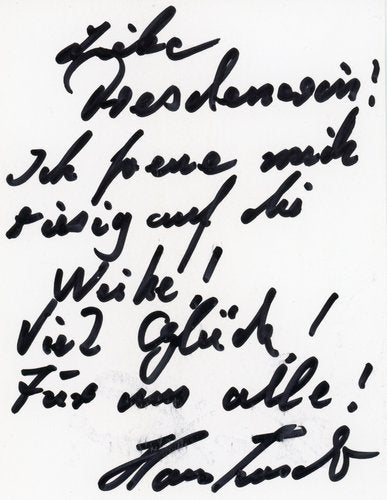 Liebe
Dresdenerin!
Ich freue mich
riesig auf die
Woche!
Viel Glück!
Für uns alle!